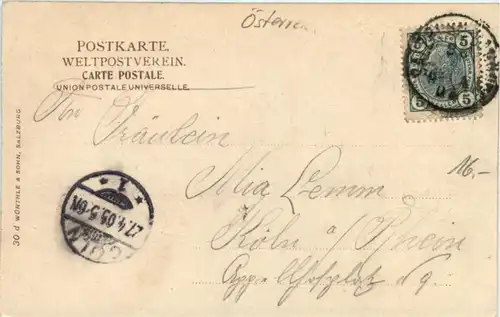 Österr
POSTKARTE.
WELTPOSTVEREIN.
CARTE POSTALE.
UNION POSTALE UNIVERSELLE.
5
5
Fräulein
Mia Lemm
16.-
Köln a/Rhein
30 d WÜRTHLE & SOHN, SALZBURG.
* 1 *
27.4.05.5-6N
CÖLN